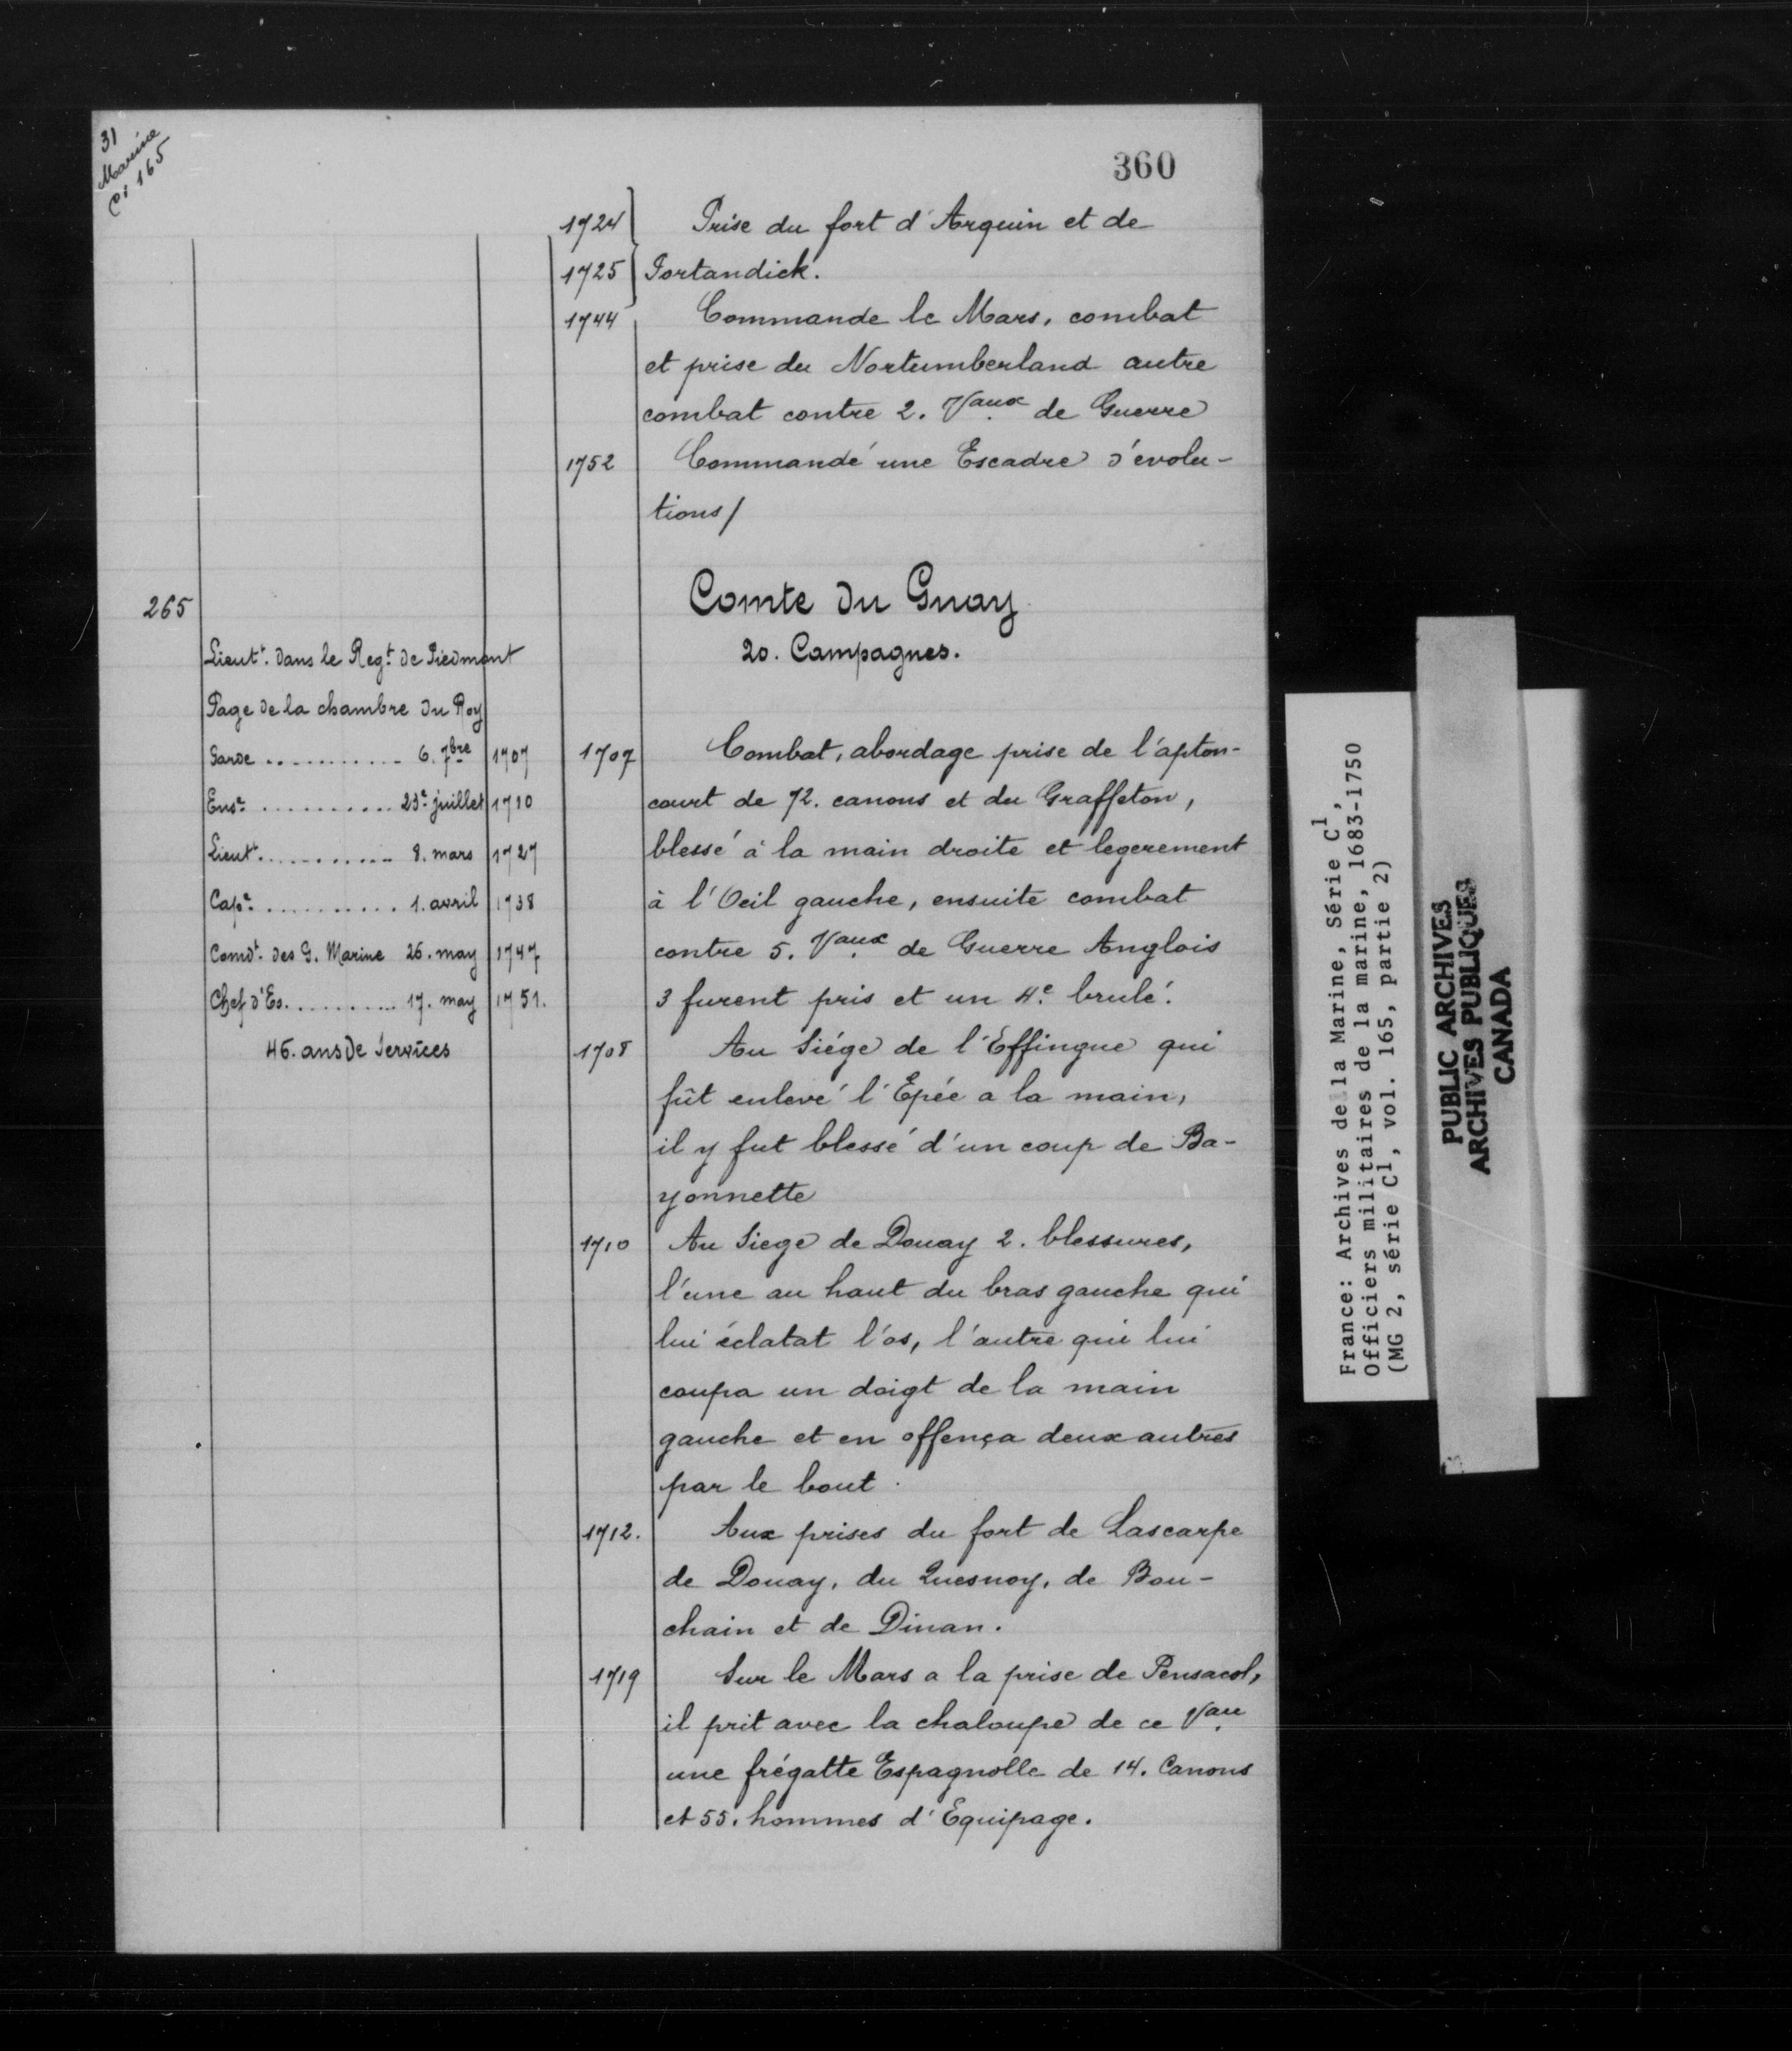 31
Marine
C1 165
360
1724 Prise du fort d'Arquin et de
1725 Portandick.
1744 Commande le Mars, combat
et prise du Nortumberland autre
combat contre 2. Vaux de Guerre
1752 Commandé une Escadre d'évolu-
tions/
265 Comte du Guay
20. Campagnes.
Lieutt. dans le Regt. de Piedmont
Page de la chambre du Roy
Garde ........... 6. 7bre 1707
Ense. .......... 23e juillet 1710
Lieutt. .......... 8. mars 1727
Cape. .......... 1. avril 1738
Comdt. des G. Marine 26. may 1747
Chef d'Es. .......... 17. may 1751.
46. ans de Services
1707 Combat, abordage prise de l'apton-
court de 72. canons et du Graffeton,
blessé à la main droite et legerement
à l'Oeil gauche, ensuite combat
contre 5. Vaux de Guerre Anglois
3 furent pris et un 4e. brulé.
1708 Au Siége de l'Effingue qui
fût enlevé l'Epée a la main,
il y fut blessé d'un coup de Ba-
yonnette
1710 Au Siege de Douay 2. blessures,
l'une au haut du bras gauche qui
lui éclatat l'os, l'autre qui lui
coupa un doigt de la main
gauche et en offença deux autres
par le bout.
1712. Aux prises du fort de Lascarpe
de Douay, du Quesnoy, de Bou-
chain et de Dinan.
1719 Sur le Mars a la prise de Pensacol,
il prit avec la chaloupe de ce Vau
une frégatte Espagnolle de 14. Canons
et 55. hommes d'Equipage.
France: Archives de la Marine, Série C1,
Officiers militaires de la marine, 1683-1750
(MG 2, série C1, vol. 165, partie 2)
PUBLIC ARCHIVES
ARCHIVES PUBLIQUES
CANADA